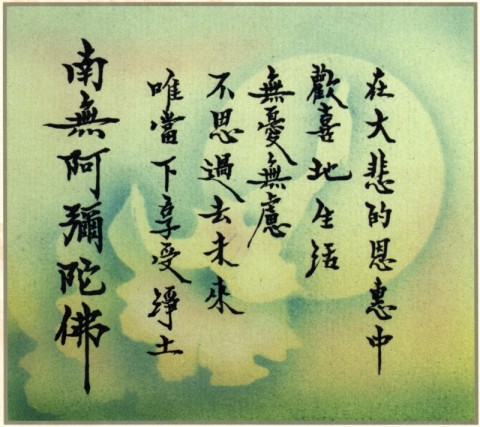 在大悲的恩惠中
歡喜地生活
無憂無慮
不思過去未來
唯當下享受淨土
南無阿彌陀佛